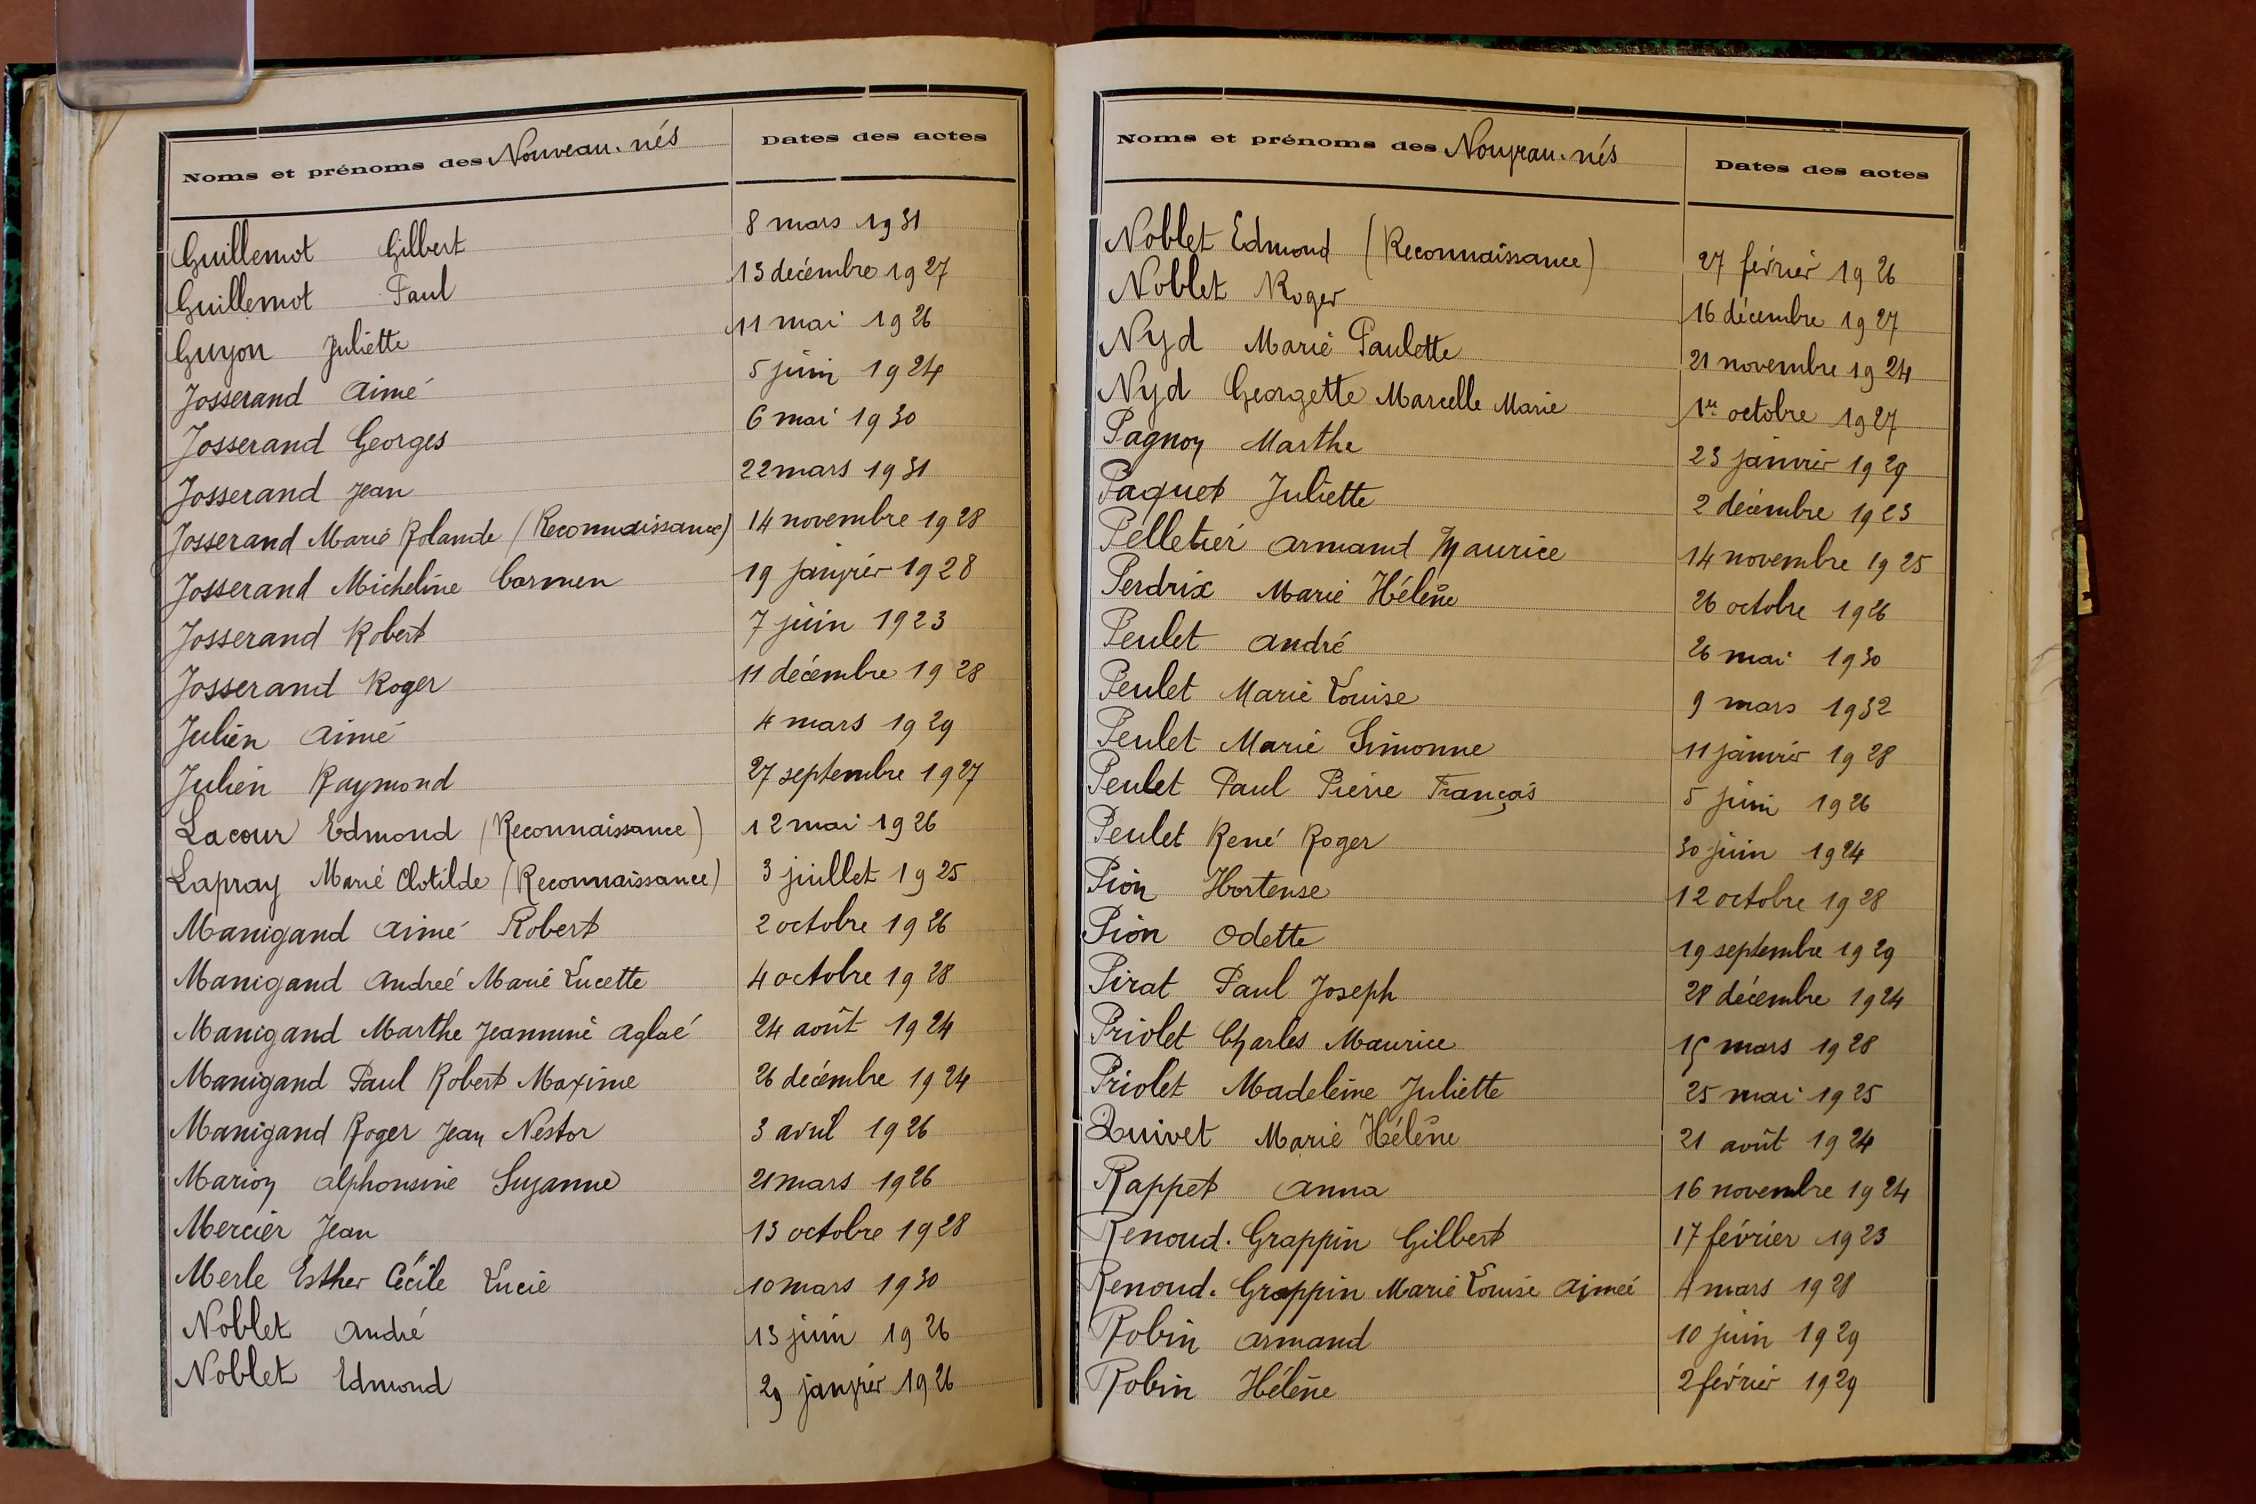 Noms et prénoms des Nouveau-nés Dates des actes
Guillemot Gilbert 8 mars 1931
Guillemot Paul 13 décembre 1927
Guyon Juliette 11 mai 1926
Josserand Aimé 5 juin 1924
Josserand Georges 6 mai 1930
Josserand Jean 22 mars 1931
Josserand Marie Rolande (Reconnaissance) 14 novembre 1928
Josserand Micheline Carmen 19 janvier 1928
Josserand Robert 7 juin 1923
Josserand Roger 11 décembre 1928
Julien Aimé 4 mars 1929
Julien Raymond 27 septembre 1927
Lacour Edmond (Reconnaissance) 12 mai 1926
Lapray Marie Clotilde (Reconnaissance) 3 juillet 1925
Manigand Aimé Robert 2 octobre 1926
Manigand Andreé Marie Lucette 4 octobre 1928
Manigand Marthe Jeannine Aglaé 24 août 1924
Manigand Paul Robert Maxime 26 décembre 1924
Manigand Roger Jean Nestor 3 avril 1926
Marion Alphonsine Suzanne 21 mars 1926
Mercier Jean 13 octobre 1928
Merle Esther Cécile Lucie 10 mars 1930
Noblet André 13 juin 1926
Noblet Edmond 29 janvier 1926
Noms et prénoms des Nouveau-nés Dates des actes
Noblet Edmond (Reconnaissance) 27 février 1926
Noblet Roger 16 décembre 1927
Nyd Marie Paulette 21 novembre 1924
Nyd Georgette Marcelle Marie 1er octobre 1927
Pagnon Marthe 23 janvier 1929
Paquet Juliette 2 décembre 1923
Pelletier Armand Maurice 14 novembre 1925
Perdrix Marie Hélène 26 octobre 1926
Peulet André 26 mai 1930
Peulet Marie Louise 9 mars 1932
Peulet Marie Simonne 11 janvier 1928
Peulet Paul Pierre François 5 juin 1926
Peulet René Roger 30 juin 1924
Pion Hortense 12 octobre 1928
Pion Odette 19 septembre 1929
Pirat Paul Joseph 28 décembre 1924
Priolet Charles Maurice 15 mars 1928
Priolet Madeleine Juliette 25 mai 1925
Quivet Marie Hélène 21 août 1924
Rappet Anna 16 novembre 1924
Renoud-Grappin Gilbert 17 février 1923
Renoud-Grappin Marie Louise Aimeé 4 mars 1928
Robin Armand 10 juin 1929
Robin Hélène 2 février 1929